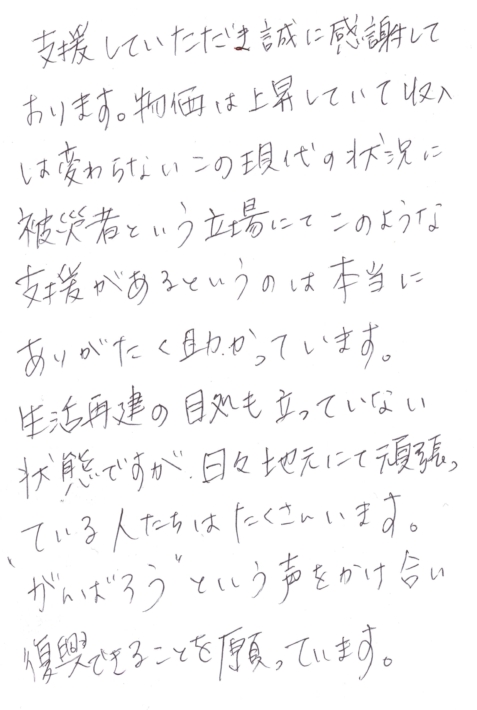 支援していただき誠に感謝して
おります。物価は上昇していて収入
は変わらないこの現代の状況に
被災者という立場にてこのような
支援があるというのは本当に
ありがたく助かっています。
生活再建の目処も立っていない
状態ですが、日々地元にて頑張っ
ている人たちはたくさんいます。
“がんばろう”という声をかけ合い
復興できることを願っています。